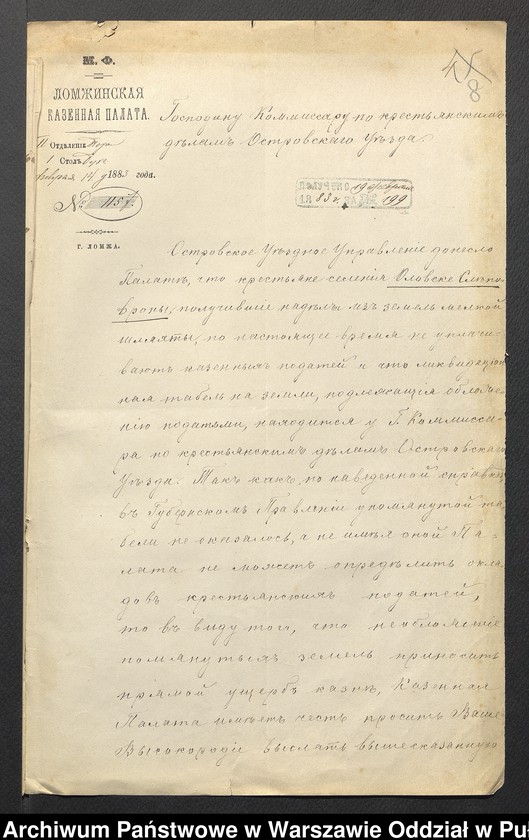 М. Ф.
ЛОМЖИНСКАЯ
КАЗЕННАЯ ПАЛАТА.
II Отдѣленіе
1 Столъ
14 д 1883 года.
№ 1157.
Г. ЛОМЖА.
8
Господину Коммиссару по крестьянскимъ
дѣламъ Островскаго Уѣзда.
ПОЛУЧЕНО 19 февраля
1883 г. ЗА № 199
Островское Уѣздное Управленіе донесло
Палатѣ, что крестьяне селенія
вроны, получившіе надѣлы изъ земель мелкой
шляхты, по настоящее время не уплачи-
ваютъ казенныхъ податей и что ликвидаціон
ная табель на земли, подлежащія обложе-
нію податьми, находится у Г. Коммисса-
ра по крестьянскимъ дѣламъ Островскаго
Уѣзда. Такъ какъ, по наведенной справкѣ
въ Губернскомъ Правленіи упомянутой та
бели не оказалось, а не имѣя оной Па-
лата не можетъ опредѣлить окла
довъ крестьянскихъ податей,
то въ виду того, что необложеніе
помянутыхъ земель приноситъ
прямой ущербъ казнѣ, Казенная
Палата имѣетъ честь просить Ваше
Высокородіе выслать вышесказанную
Archiwum Państwowe w Warszawie Oddział w Pu